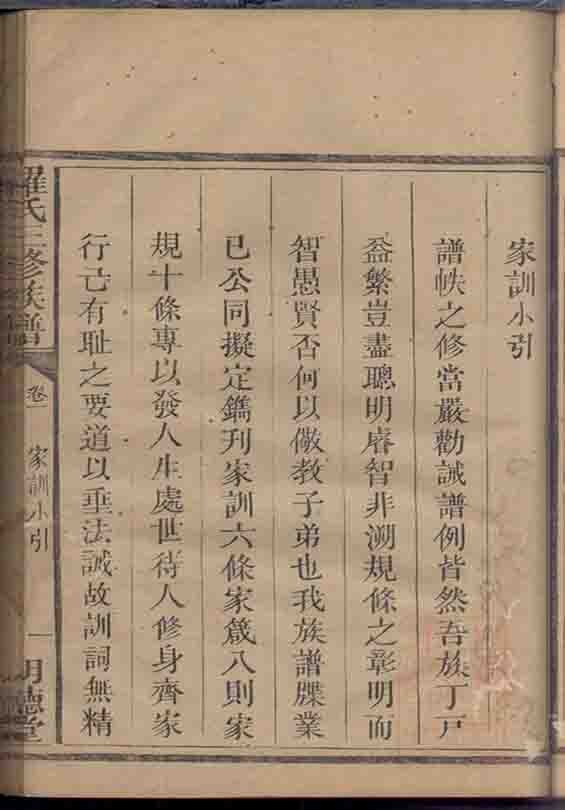 家訓小引
譜帙之修當嚴勸誡譜例皆然吾族丁戸
益繁豈盡聰明睿智非溯規條之彰明而
智愚賢否何以儆教子弟也我族譜牒業
已公同擬定鐫刊家訓六條家箴八則家
規十條專以發人生處世待人修身齊家
行己有耻之要道以垂法誡故訓詞無精
羅氏三修族譜
卷一
家訓小引
一
明德堂